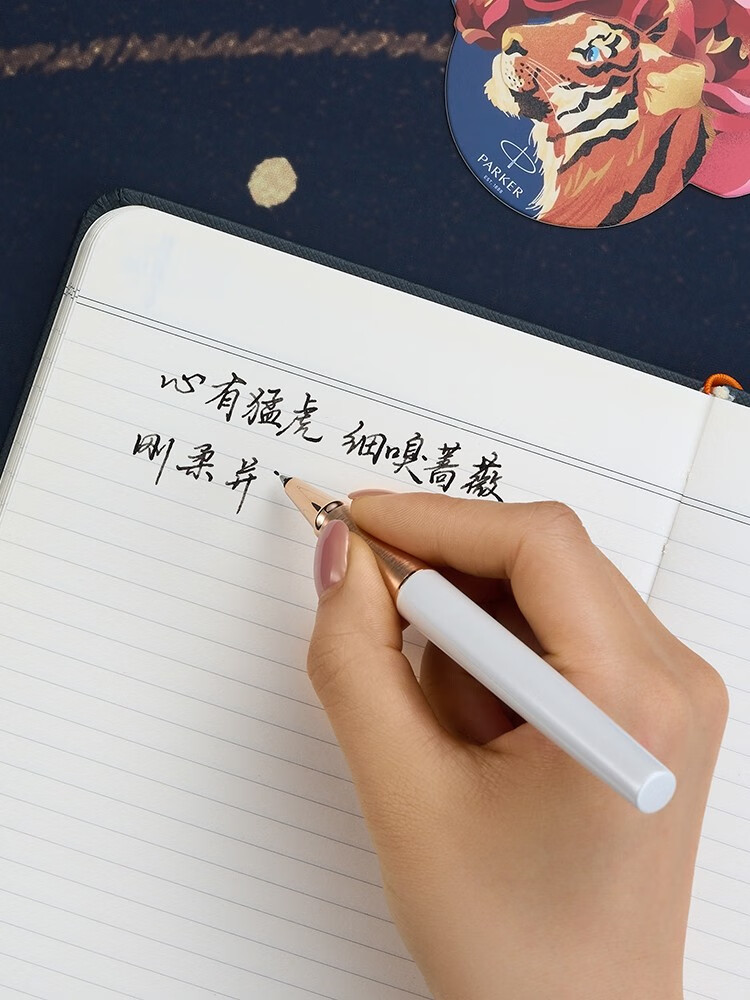 PARKER
EST. 1888
心有猛虎 细嗅蔷薇
刚柔并